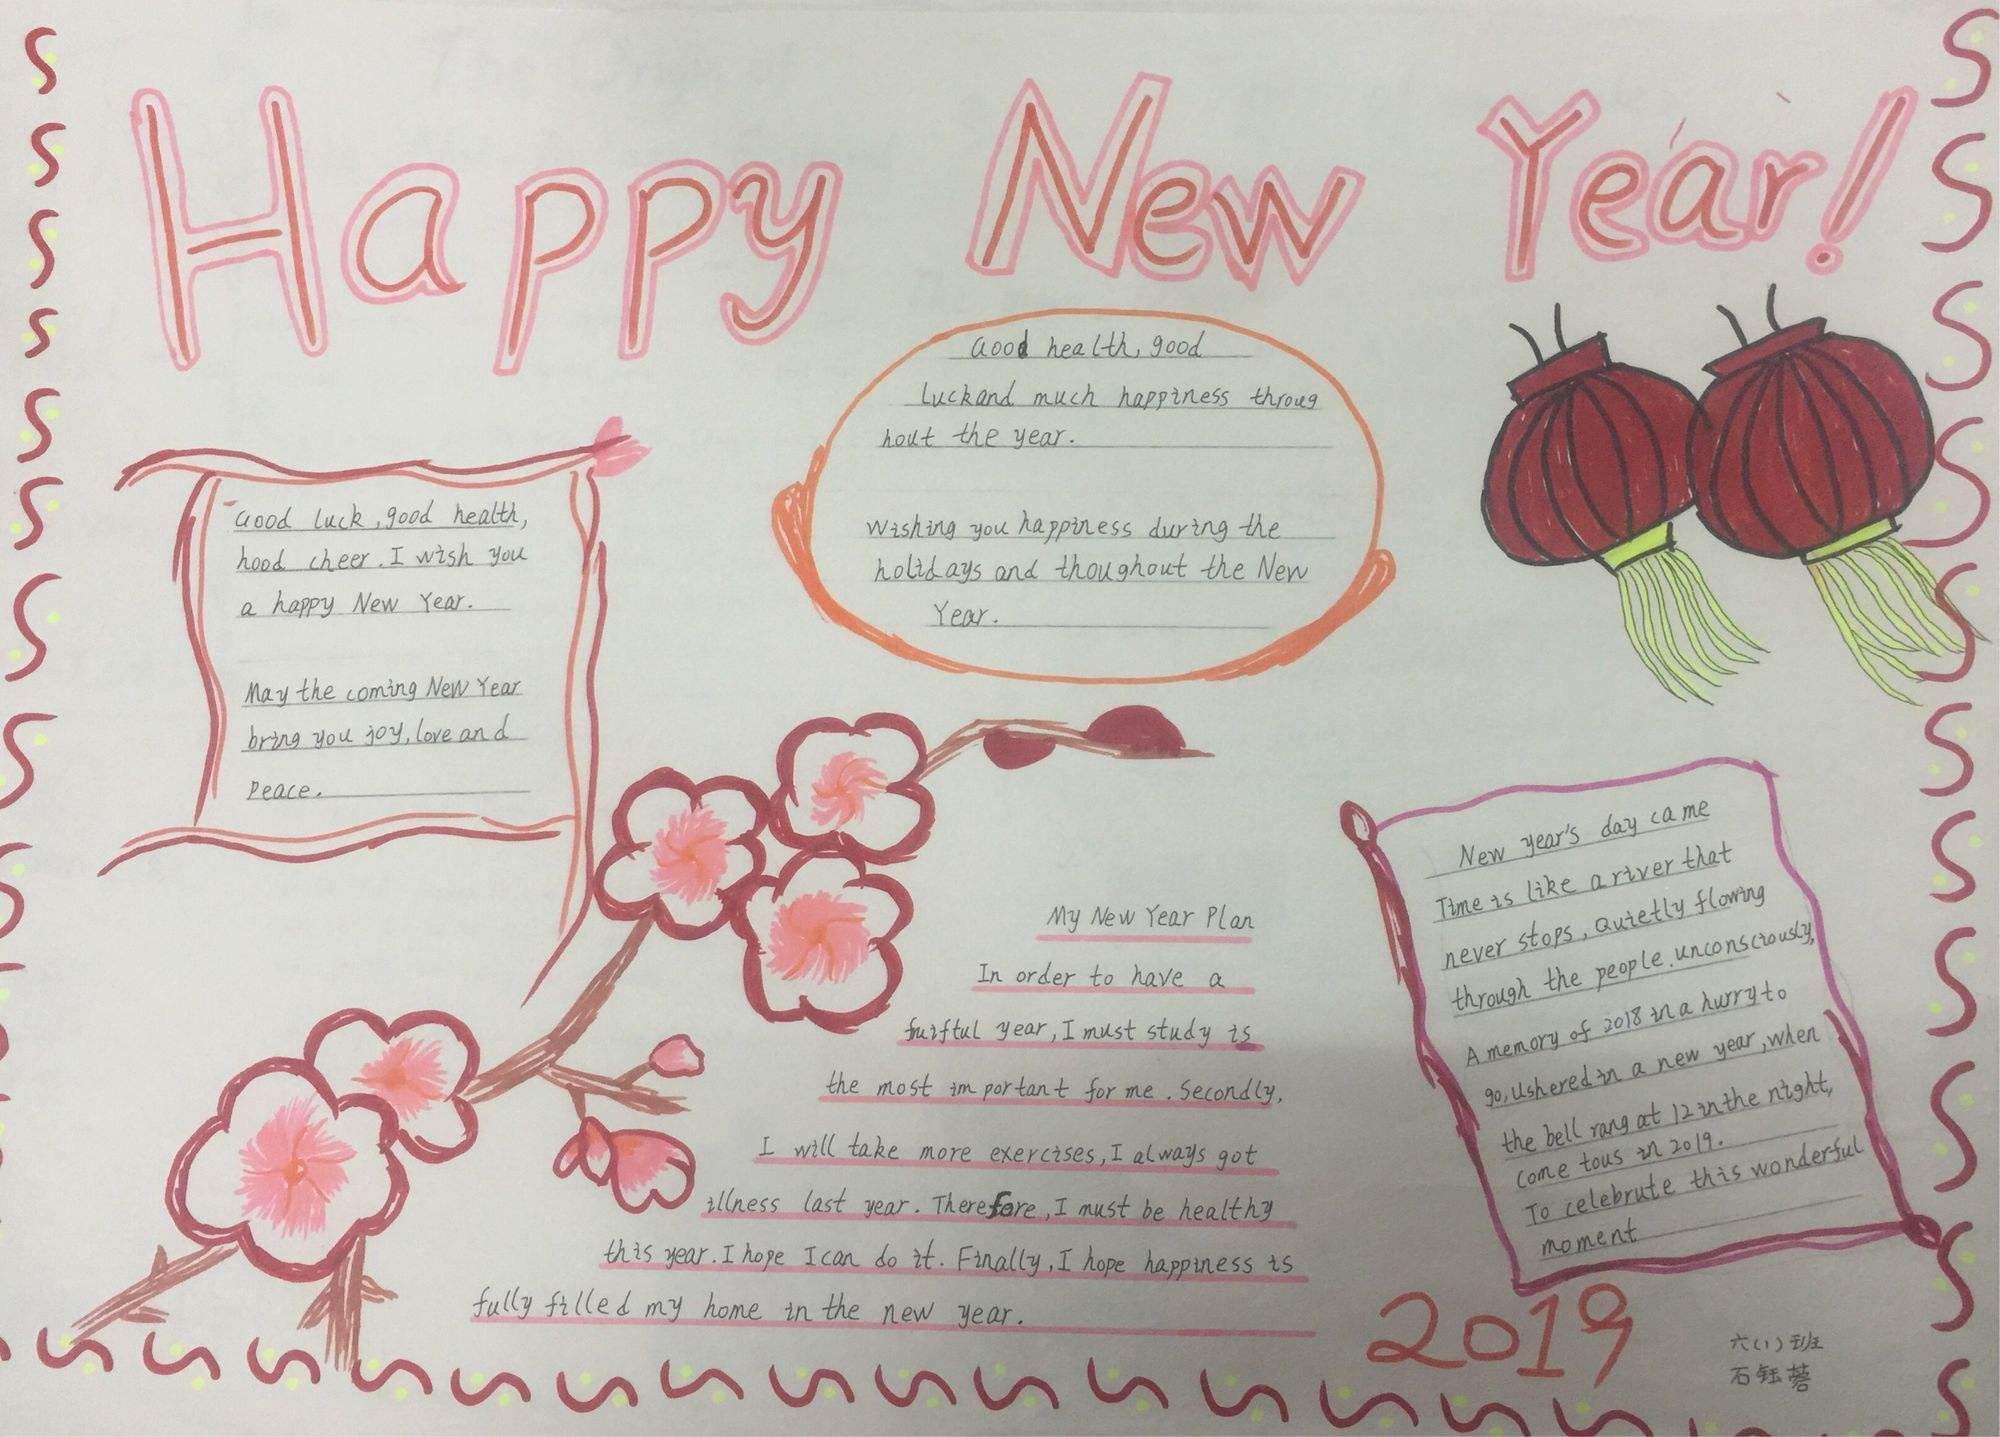 Happy New Year!
Good health, good
luckand much happiness throug
hout the year.
Wishing you happiness during the
holidays and thoughout the New
Year.
Good luck, good health,
hood cheer. I wish you
a happy New Year.
May the coming New Year
bring you joy, love and
Peace.
My New Year Plan
In order to have a
fruiftul year, I must study is
the most important for me. Secondly,
I will take more exercises, I always got
illness last year. Therefore, I must be healthy
this year. I hope I can do it. Finally, I hope happiness is
fully filled my home in the new year.
New year's day came
Time is like a river that
never stops, Quietly flowing
through the people. unconsciously,
A memory of 2018 in a hurry to
go, Ushered in a new year, when
the bell rang at 12 in the night,
come tous in 2019.
To celebrute this wonderful
moment
2019
六(1)班
石钰